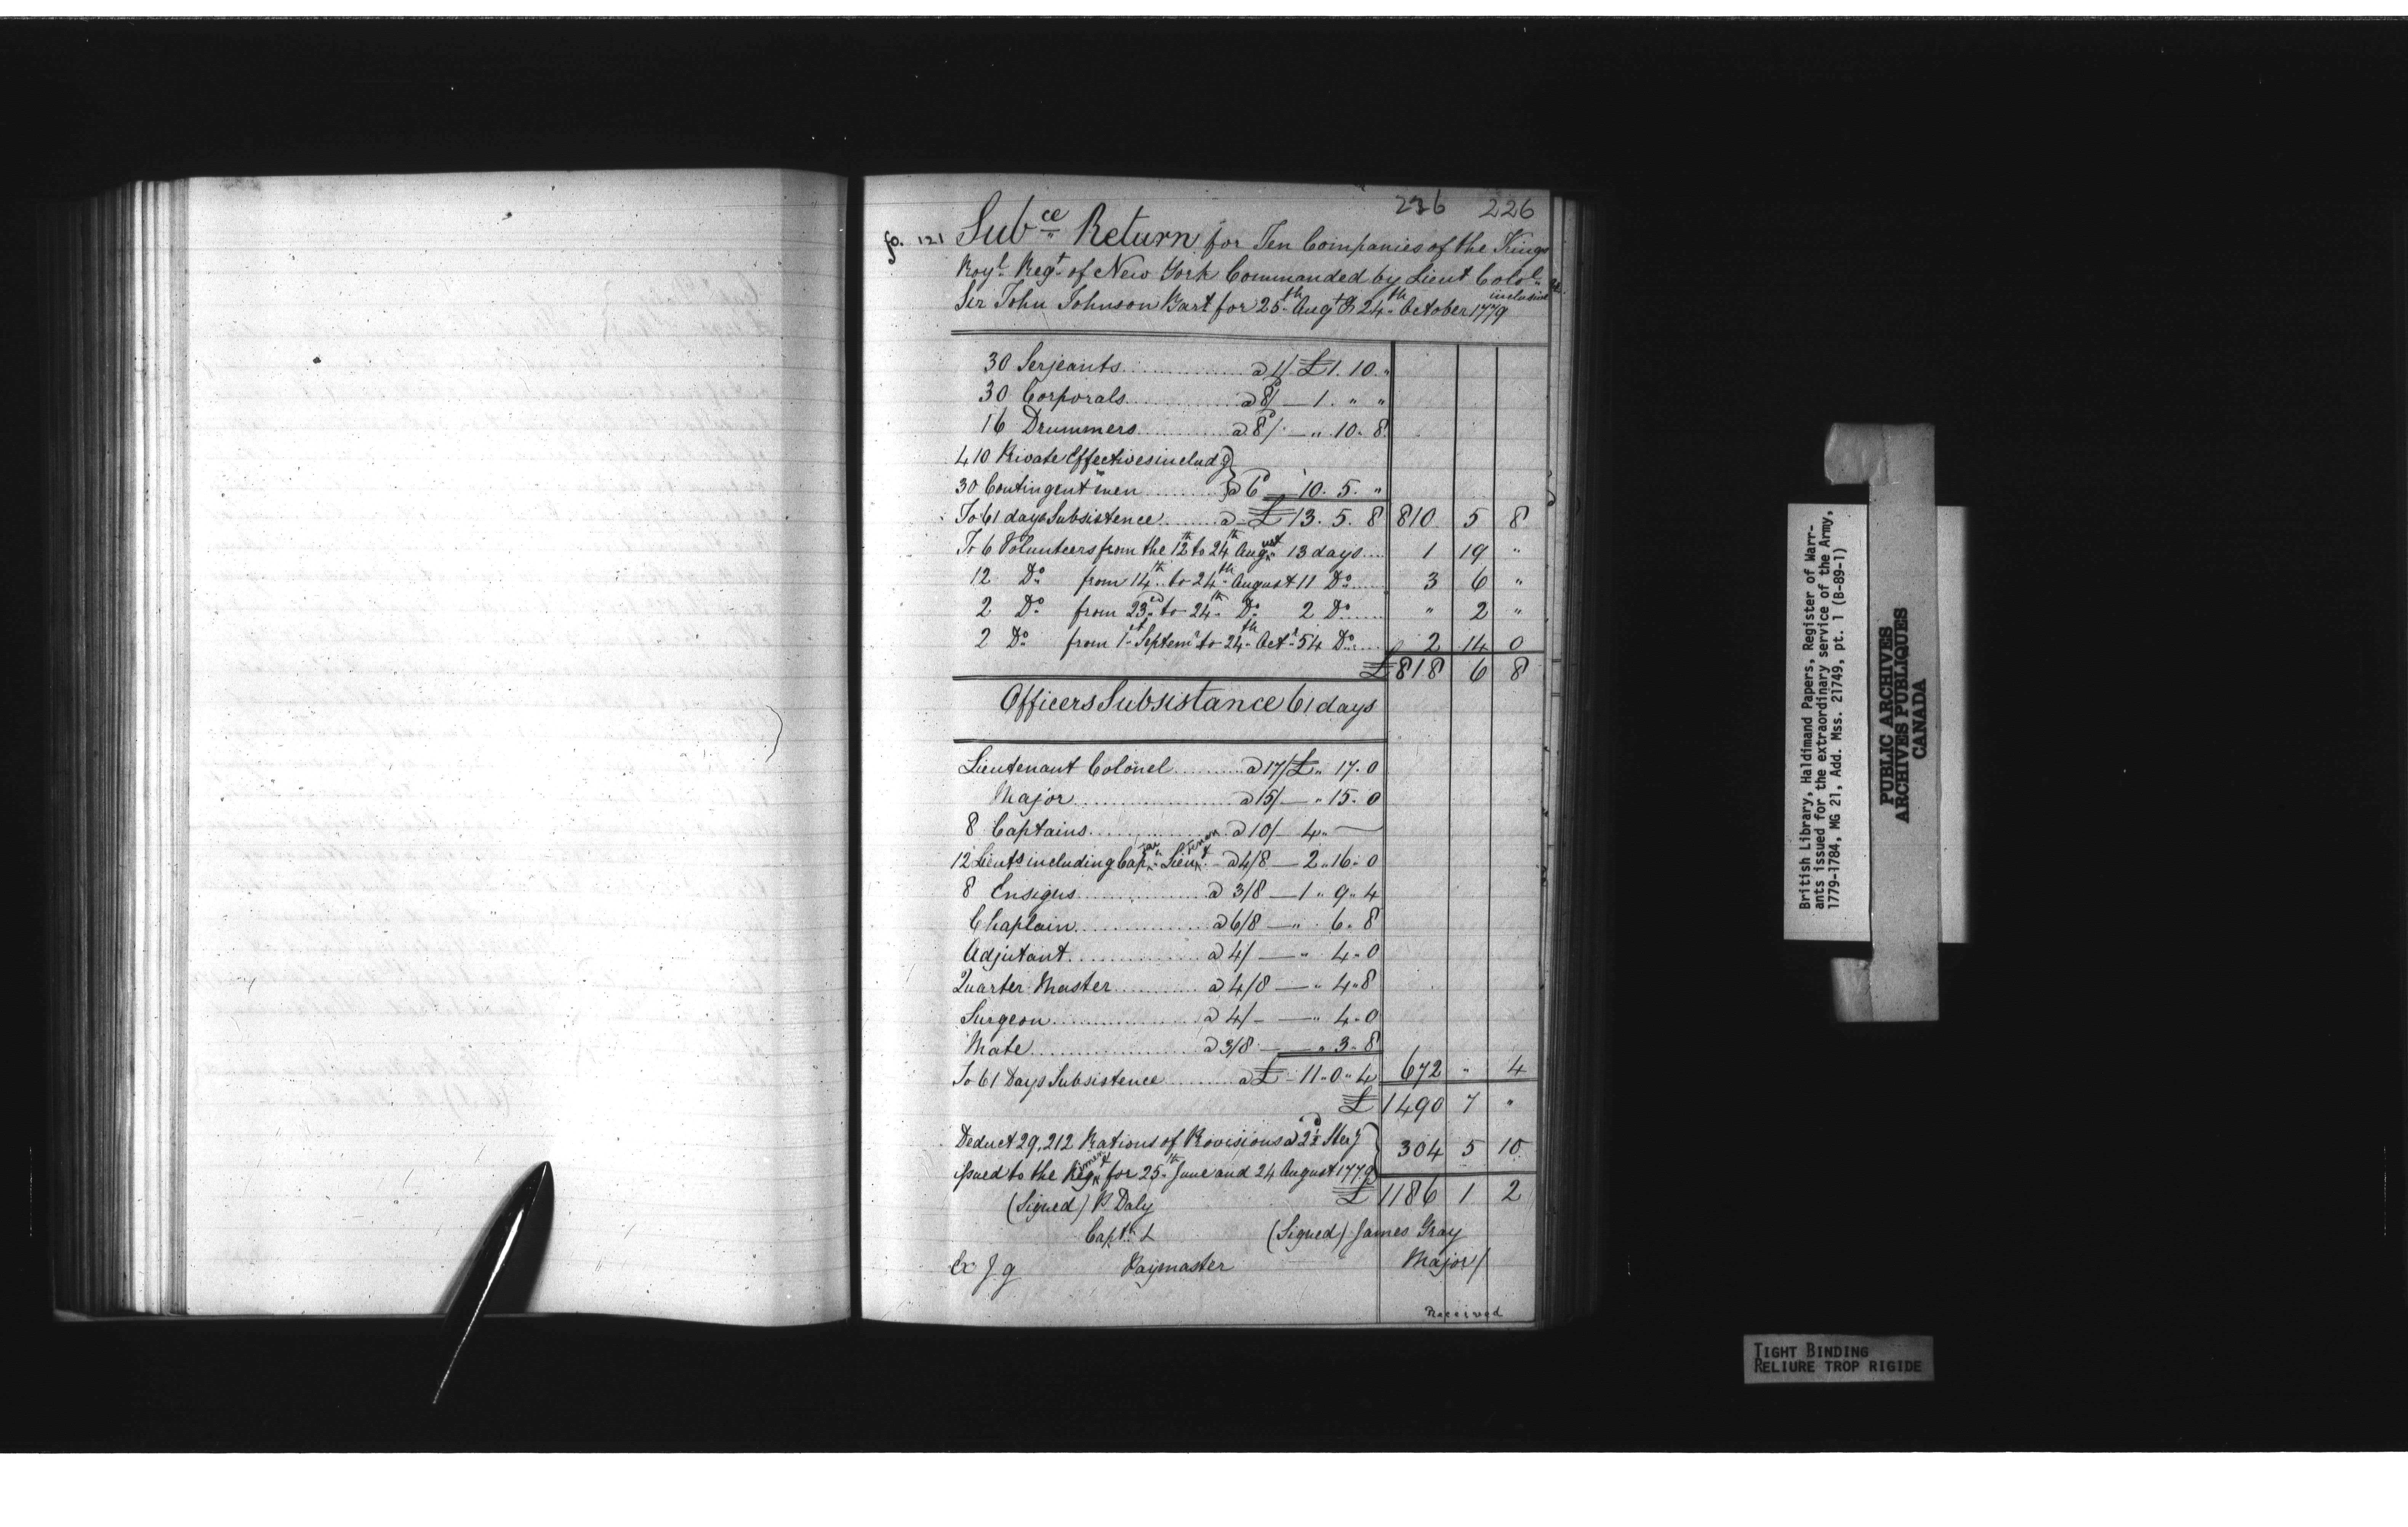 236 226
fo. 121 Subce Return for Ten Companies of the Kings
Royl Regt of New York Commanded by Lieut Colol
Sir John Johnson Bart for 25th Augt & 24th October 1779 inclusive
30 Serjeants a 1/ £1. 10. "
30 Corporals a 8d/ — 1. " "
16 Drummers a 8d/. — ". 10. 8.
410 Private Effectives includg }
30 Contingent men } a 6d — 10. 5. "
To 61 days Subsistence a £ 13. 5. 8 810 5 8
To 6 Volunteers from the 12th to 24th August 13 days 1 19 "
12 Do from 14th to 24th August 11 Do 3 6 "
2 Do from 23ed to 24th Do 2 Do " 2 "
2 Do from 1st Septemr to 24th Octr 54 Do 2 14 0
£818 6 8
Officers Subsistance 61 days
Lieutenant Colonel a 17/ £ " 17. 0
Major a 15/ — " 15. 0
8 Captains a 10/ 4 " —
12 Lieuts including Captain Lieutenant a 4/8 — 2 " 16 " 0
8 Ensigns a 3/8 — 1 " 9 " 4
Chaplain a 6/8 — " 6 " 8
Adjutant a 4/ — " 4 " 0
Quarter Master a 4/8 — " 4 " 8
Surgeon a 4/ — " 4 " 0
Mate a 3/8 — " 3 " 8
To 61 Days Subsistence a £ 11 " 0 " 4 672 " 4
£ 1490 7 "
Deduct 29,212 Rations of Provisions a 2½d Sterg } 304 5 10
issued to the Regiment for 25th June and 24 August 1779
£ 1186 1 2
(Signed) P. Daly
Captn L (Signed) James Gray
Ex J. g Paymaster Major/
Received
British Library, Haldimand Papers, Register of Warr-
ants issued for the extraordinary service of the Army,
1779-1784, MG 21, Add. Mss. 21749, pt. 1 (B-89-1)
PUBLIC ARCHIVES
ARCHIVES PUBLIQUES
CANADA
TIGHT BINDING
RELIURE TROP RIGIDE